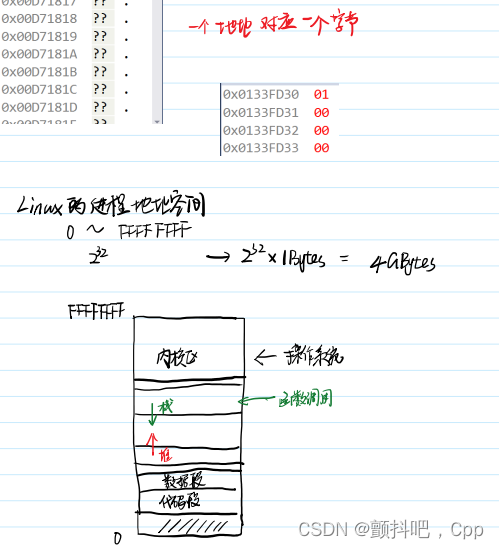 0x00D71817 ?? .
0x00D71818 ?? .
0x00D71819 ?? .
0x00D7181A ?? .
0x00D7181B ?? .
0x00D7181C ?? .
0x00D7181D ?? .
0x00D7181E ?? .
一个地址对应一个字节
0x0133FD30 01
0x0133FD31 00
0x0133FD32 00
0x0133FD33 00
Linux的进程地址空间
0 ~ FFFF FFFF
2^32 → 2^32 × 1Bytes = 4GBytes
FFFFFFFF
内核区 ← 操作系统
栈 ← 函数调用
堆
数据段
代码段
0
CSDN @颤抖吧，Cpp